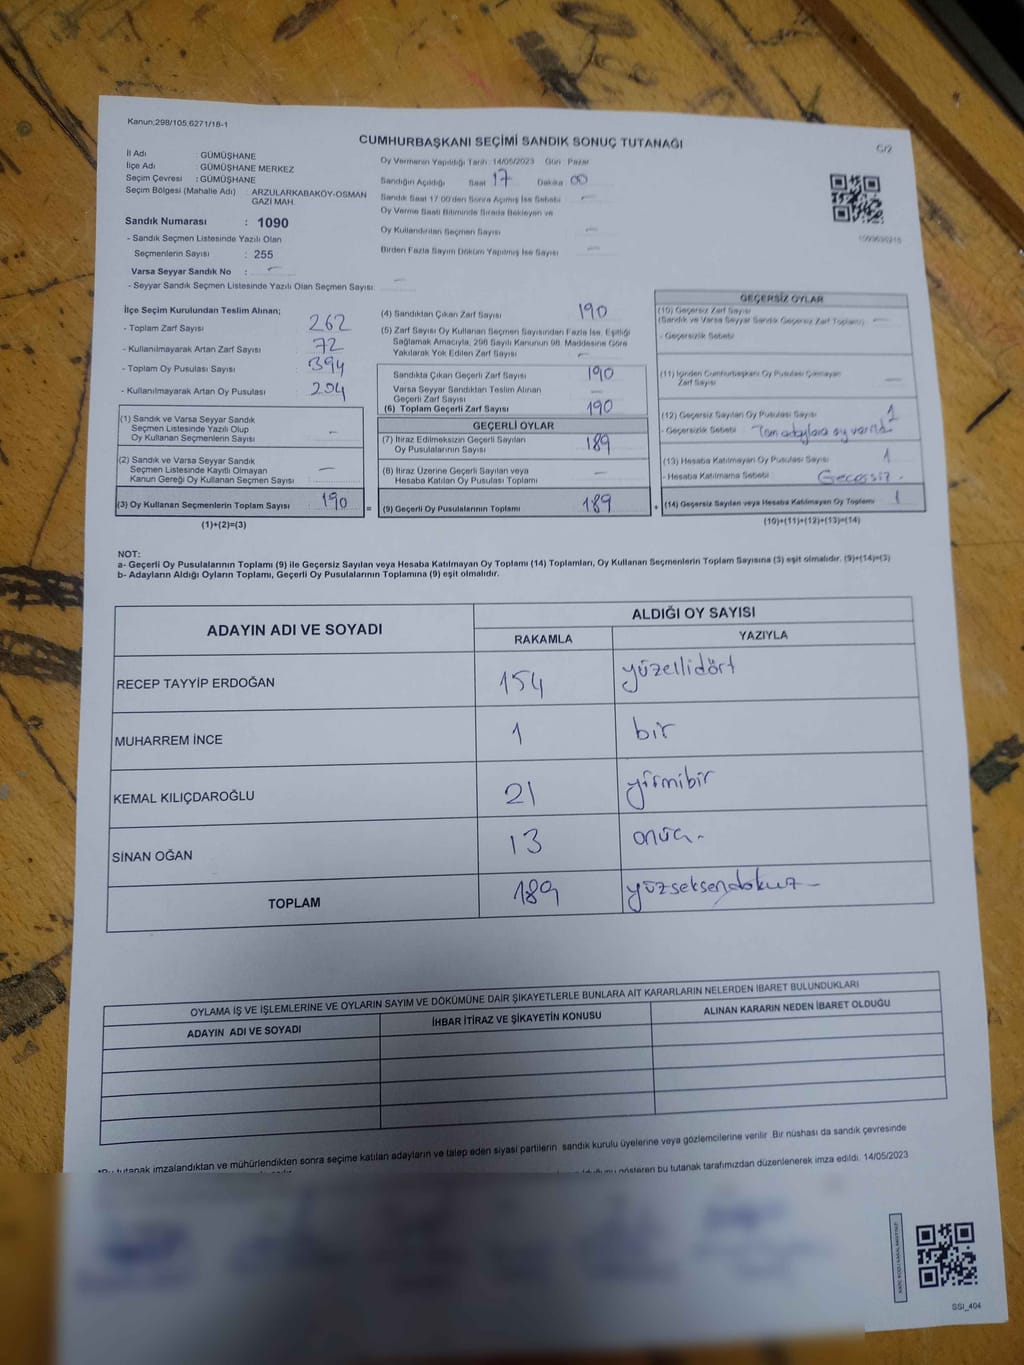 Kanun:298/105,6271/18-1
CUMHURBAŞKANI SEÇİMİ SANDIK SONUÇ TUTANAĞI
C/2
İl Adı : GÜMÜŞHANE
İlçe Adı : GÜMÜŞHANE MERKEZ
Seçim Çevresi : GÜMÜŞHANE
Seçim Bölgesi (Mahalle Adı) : ARZULARKABAKÖY-OSMAN
GAZİ MAH.
Sandık Numarası : 1090
- Sandık Seçmen Listesinde Yazılı Olan
Seçmenlerin Sayısı : 255
Varsa Seyyar Sandık No : —
- Seyyar Sandık Seçmen Listesinde Yazılı Olan Seçmen Sayısı: —
Oy Vermenin Yapıldığı Tarih : 14/05/2023 Gün : Pazar
Sandığın Açıldığı Saat 17 Dakika 00
Sandık Saat 17.00'den Sonra Açılmış İse Sebebi —
Oy Verme Saati Bitiminde Sırada Bekleyen ve
Oy Kullandırılan Seçmen Sayısı —
Birden Fazla Sayım Döküm Yapılmış İse Sayısı —
İlçe Seçim Kurulundan Teslim Alınan;
- Toplam Zarf Sayısı 262
- Kullanılmayarak Artan Zarf Sayısı 72
- Toplam Oy Pusulası Sayısı 394
- Kullanılmayarak Artan Oy Pusulası 204
(1) Sandık ve Varsa Seyyar Sandık
Seçmen Listesinde Yazılı Olup
Oy Kullanan Seçmenlerin Sayısı —
(2) Sandık ve Varsa Seyyar Sandık
Seçmen Listesinde Kayıtlı Olmayan
Kanun Gereği Oy Kullanan Seçmen Sayısı —
(3) Oy Kullanan Seçmenlerin Toplam Sayısı 190 =
(1)+(2)=(3)
(4) Sandıktan Çıkan Zarf Sayısı 190
(5) Zarf Sayısı Oy Kullanan Seçmen Sayısından Fazla İse, Eşitliği
Sağlamak Amacıyla, 298 Sayılı Kanunun 98. Maddesine Göre
Yakılarak Yok Edilen Zarf Sayısı —
Sandıkta Çıkan Geçerli Zarf Sayısı 190
Varsa Seyyar Sandıktan Teslim Alınan
Geçerli Zarf Sayısı
(6) Toplam Geçerli Zarf Sayısı 190
GEÇERLİ OYLAR
(7) İtiraz Edilmeksizin Geçerli Sayılan
Oy Pusulalarının Sayısı 189
(8) İtiraz Üzerine Geçerli Sayılan veya
Hesaba Katılan Oy Pusulası Toplamı —
(9) Geçerli Oy Pusulalarının Toplamı 189 +
GEÇERSİZ OYLAR
(10) Geçersiz Zarf Sayısı
(Sandık ve Varsa Seyyar Sandık Geçersiz Zarf Toplamı) —
- Geçersizlik Sebebi
(11) İçinden Cumhurbaşkanı Oy Pusulası Çıkmayan
Zarf Sayısı —
(12) Geçersiz Sayılan Oy Pusulası Sayısı 1
- Geçersizlik Sebebi Tüm adaylara oy
(13) Hesaba Katılmayan Oy Pusulası Sayısı 1
- Hesaba Katılmama Sebebi Geçersiz.
(14) Geçersiz Sayılan veya Hesaba Katılmayan Oy Toplamı 1
(10)+(11)+(12)+(13)=(14)
NOT:
a- Geçerli Oy Pusulalarının Toplamı (9) ile Geçersiz Sayılan veya Hesaba Katılmayan Oy Toplamı (14) Toplamları, Oy Kullanan Seçmenlerin Toplam Sayısına (3) eşit olmalıdır. (9)+(14)=(3)
b- Adayların Aldığı Oyların Toplamı, Geçerli Oy Pusulalarının Toplamına (9) eşit olmalıdır.
ADAYIN ADI VE SOYADI
ALDIĞI OY SAYISI
RAKAMLA YAZIYLA
RECEP TAYYİP ERDOĞAN 154 yüzellidört
MUHARREM İNCE 1 bir
KEMAL KILIÇDAROĞLU 21 yirmibir
SİNAN OĞAN 13 onüç-
TOPLAM 189 yüzseksendokuz-
OYLAMA İŞ VE İŞLEMLERİNE VE OYLARIN SAYIM VE DÖKÜMÜNE DAİR ŞİKAYETLERLE BUNLARA AİT KARARLARIN NELERDEN İBARET BULUNDUKLARI
ADAYIN ADI VE SOYADI İHBAR İTİRAZ VE ŞİKAYETİN KONUSU ALINAN KARARIN NEDEN İBARET OLDUĞU
*Bu tutanak imzalandıktan ve mühürlendikten sonra seçime katılan adayların ve talep eden siyasi partilerin sandık kurulu üyelerine veya gözlemcilerine verilir. Bir nüshası da sandık çevresinde
gösteren bu tutanak tarafımızdan düzenlenerek imza edildi. 14/05/2023
SSI_404